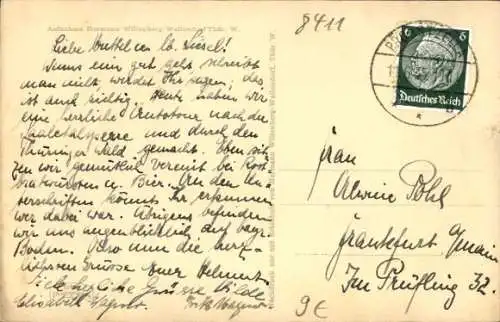 Aufnahme Hermann Müllenberg Wallendorf Thür. W.
8411
Liebe Muttel u. lb. Liesel!
Wenns ein gut geht schreibt
man nicht werdet Ihr sagen; das
ist auch richtig. Heute haben wir
eine herrliche Autotour nach der
Saaletalsperre und durch den
Thüringer Wald gemacht. Eben sit-
zen wir gemütlich vereint bei Rost-
bratwürsten u. Bier. An den Un-
terschriften könnt Ihr erkennen
wer dabei war. Übrigens befinden
wir uns augenblicklich auf bayr.
Boden. Also nun die herz-
lichsten Grüsse Euer Helmut.
Viele herzliche Grüsse Hilde
Elisabeth Wagner. Fritz Wagner
6 6
Deutsches Reich
Frau
Alwine Pohl
Frankfurt Main
Im Prüfling 32.
9€